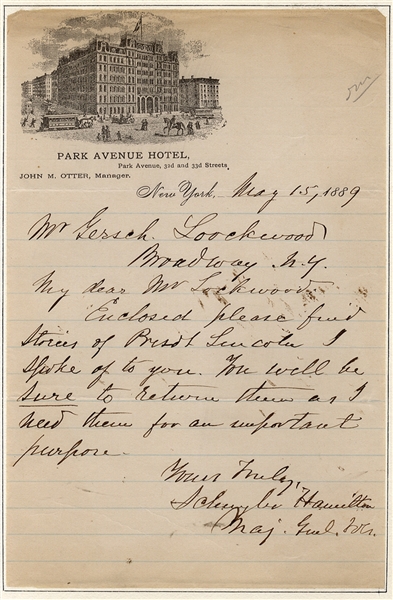 PARK AVENUE HOTEL,
Park Avenue, 32d and 33d Streets
JOHN M. OTTER, Manager.
New York, May 15, 1889
Mr Gersch. Loockwood
Broadway N.Y.
My dear Mr Lockwood
Enclosed please find
Stories of Presdt Lincoln I
spoke of to you. You will be
sure to return them as I
need them for an important
purpose
Yours Truly,
Schuyler Hamilton
Maj. Genl. Vols.